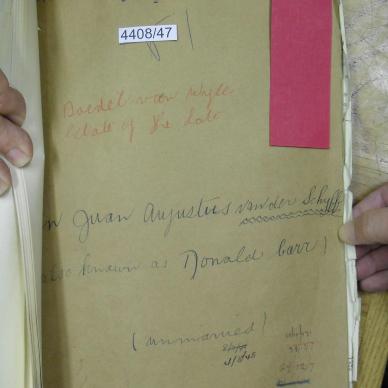 4408/47
Boedel van wyle
Estate of the late
n Juan Augustus van der Schyff
also known as Donald Carr
(unmarried)